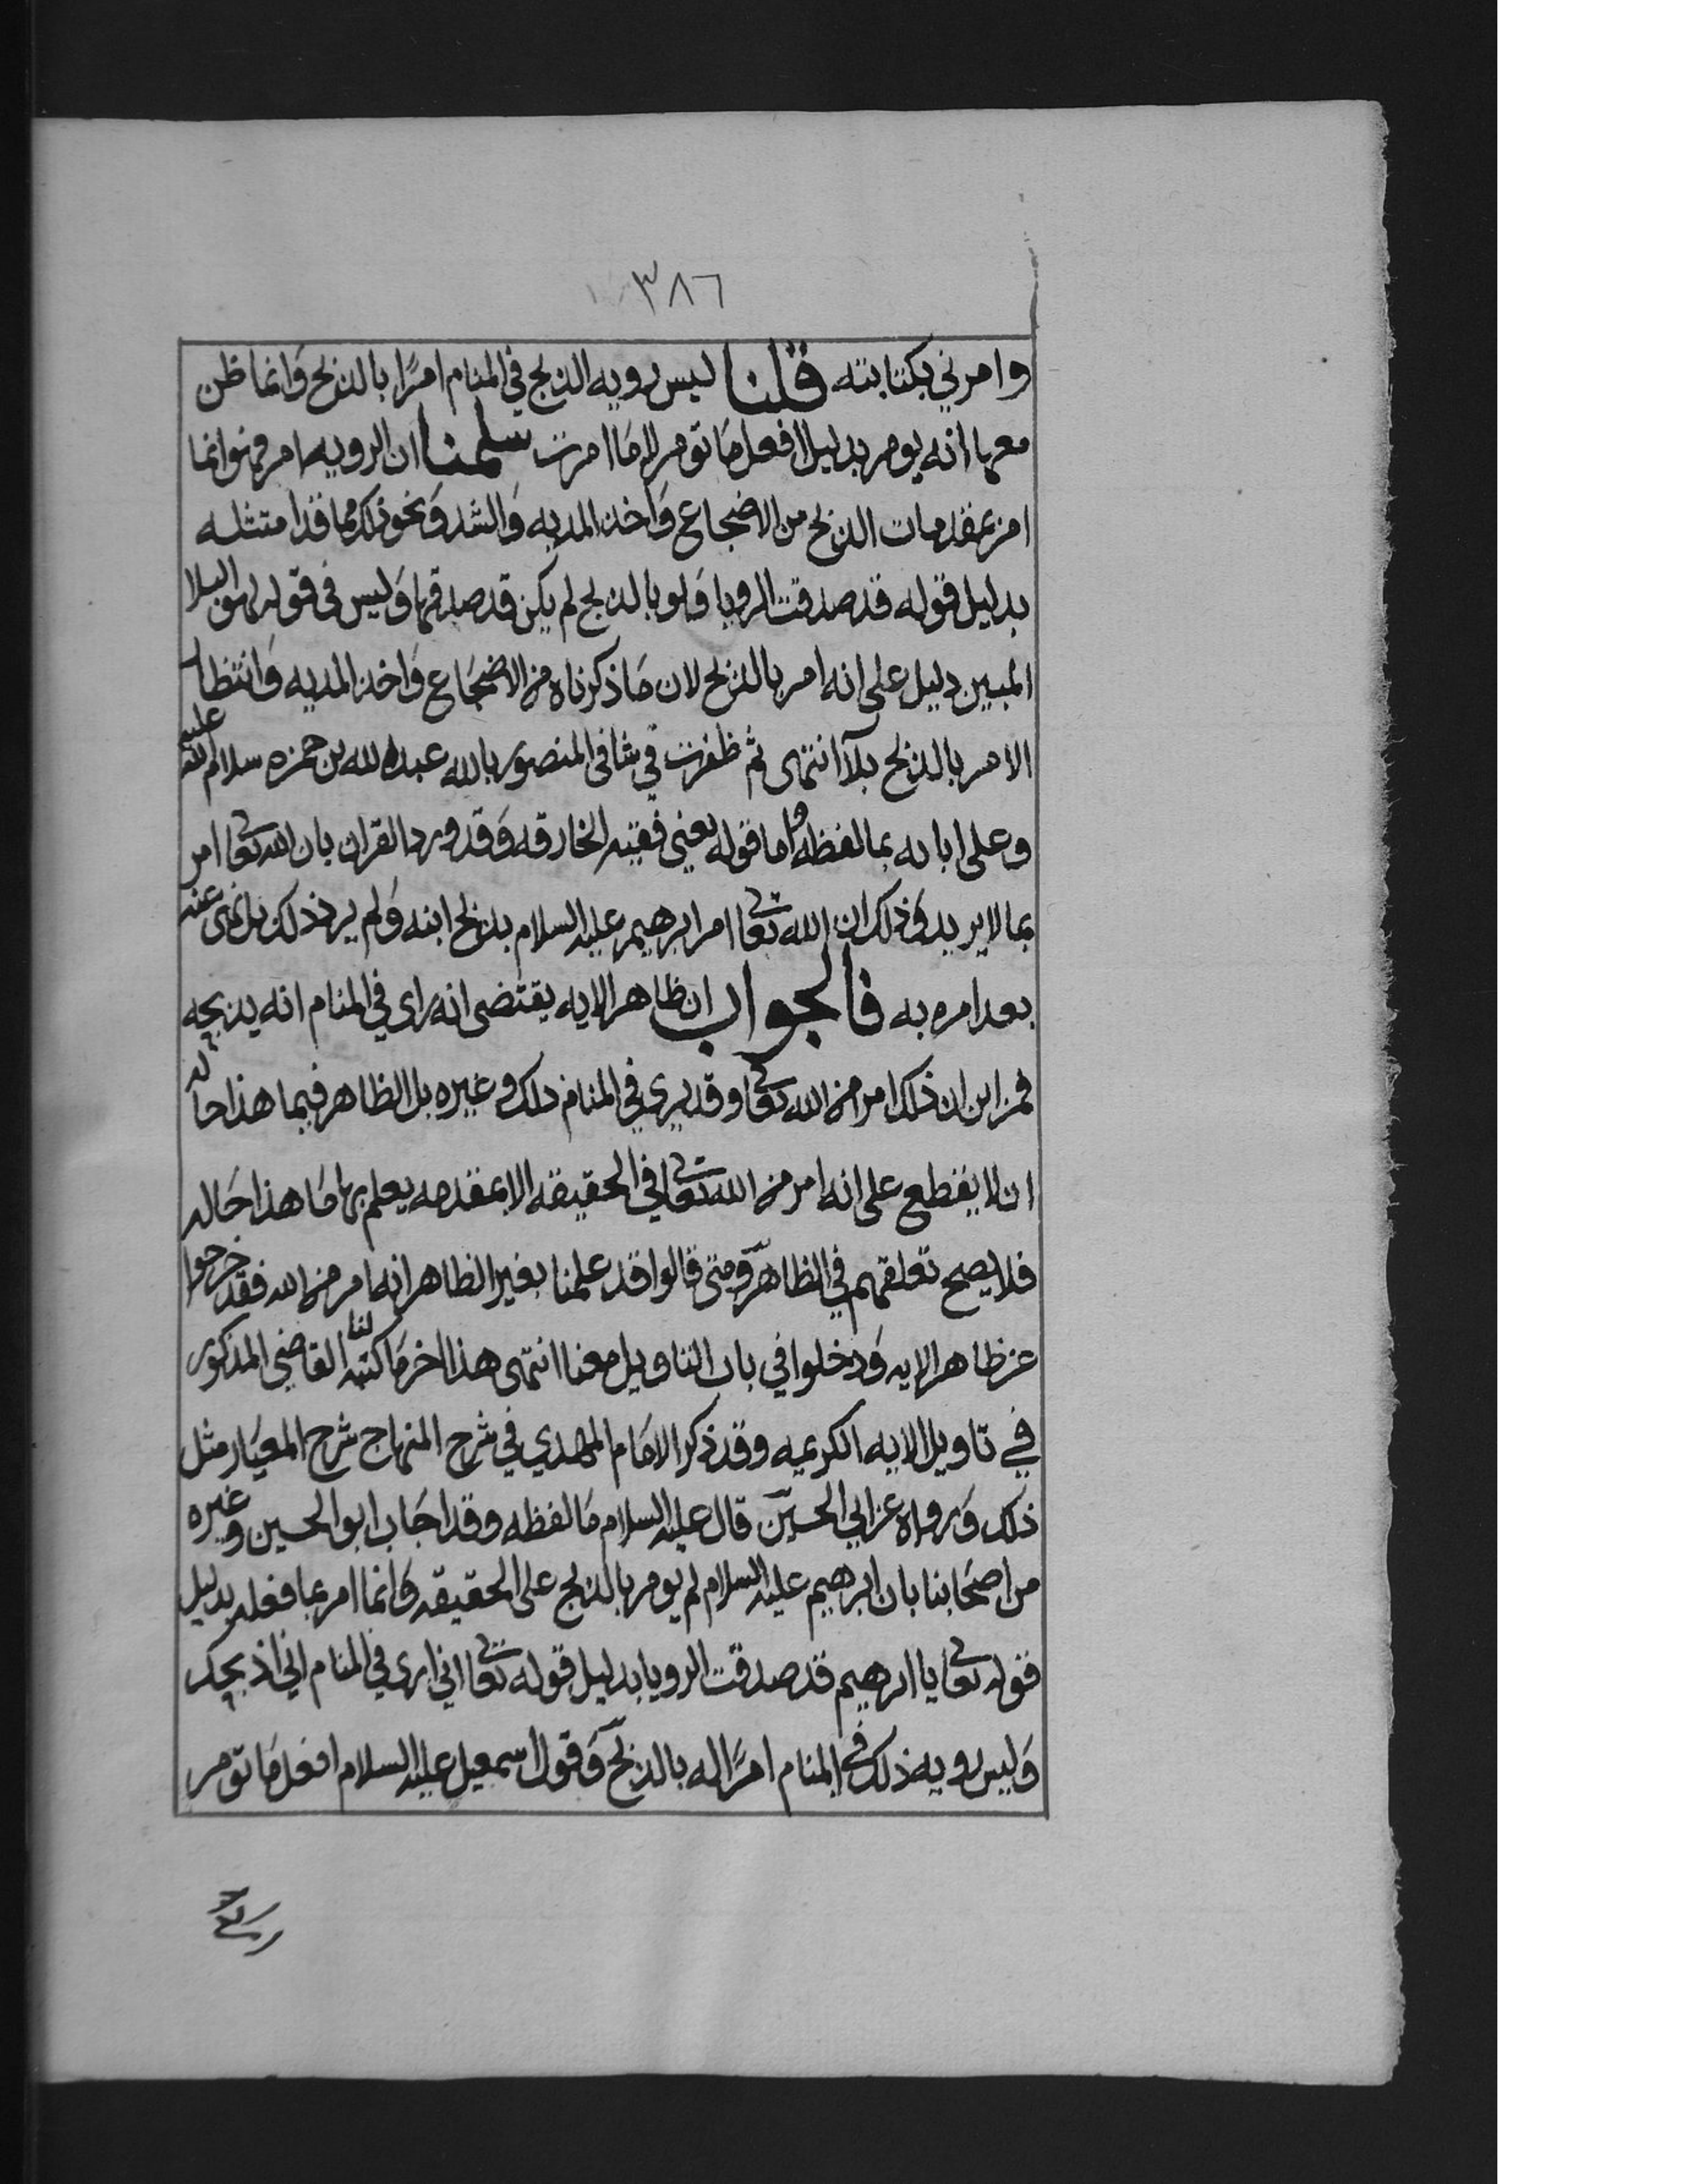 ٣٨٦
وامرني بكتابته قلنا ليس رويه الذبح في المنام امرًا بالذبح وانما ظن
معها انه يومر بدليل افعل ما تومر لا ما امرت سلمنا ان الرويه امر فهو انما
امر بمقدمات الذبح من الاضجاع واخذ المديه والشد ونحو ذلك مما قد امتثله
بدليل قوله قد صدقت الرويا ولو بالذبح لم يكن قد صدقها وليس في قوله لهو البلا
المبين دليل على انه امر بالذبح لان ما ذكرناه من الاضجاع واخذ المديه وانتظار
الامر بالذبح بلآ انتهى ثم ظفرت في شافي المنصور بالله عبد الله بن حمزه سلام الله عليه
وعلى ابايه بما لفظه واما قوله يعني فقيه الخارقه وقد ورد القران بان الله تعالى امر
بما لا يريد وذلك ان الله تعالى امر ابرهيم عليه السلام بذبح ابنه ولم يرد ذلك بل نهى عنه
بعد امره به فالجواب ان ظاهر الايه يقتضي انه راى في المنام انه يذبحه
فمن اين ان ذلك امر من الله تعالى وقد يرى في المنام ذلك وغيره بل الظاهر فيما هذا حاله
ان لا يقطع على انه امر من الله تعالى في الحقيقه الا بمقدمه يعلم بها ما هذا حاله
فلا يصح تعلقهم في الظاهر ومتى قالوا قد علمنا بغير الظاهر انه امر من الله فقد خرجوا
عن ظاهر الايه ودخلوا في باب التاويل معنا انتهى هذا اخر ما كتبه لنا القاضي المذكور
في تاويل الايه الكريمه وقد ذكر الامام المهدي في شرح المنهاج شرح المعيار مثل
ذلك ورواه عن ابي الحسين قال عليه السلام ما لفظه وقد اجاب ابو الحسين وغيره
من اصحابنا بان ابرهيم عليه السلام لم يومر بالذبح على الحقيقه وانما امر بما فعله بدليل
قوله تعالى يا ابرهيم قد صدقت الرويا بدليل قوله تعالى اني ارى في المنام اني اذبحك
وليس رويه ذلك في المنام امرًا له بالذبح وقول اسمعيل عليه السلام افعل ما تومر